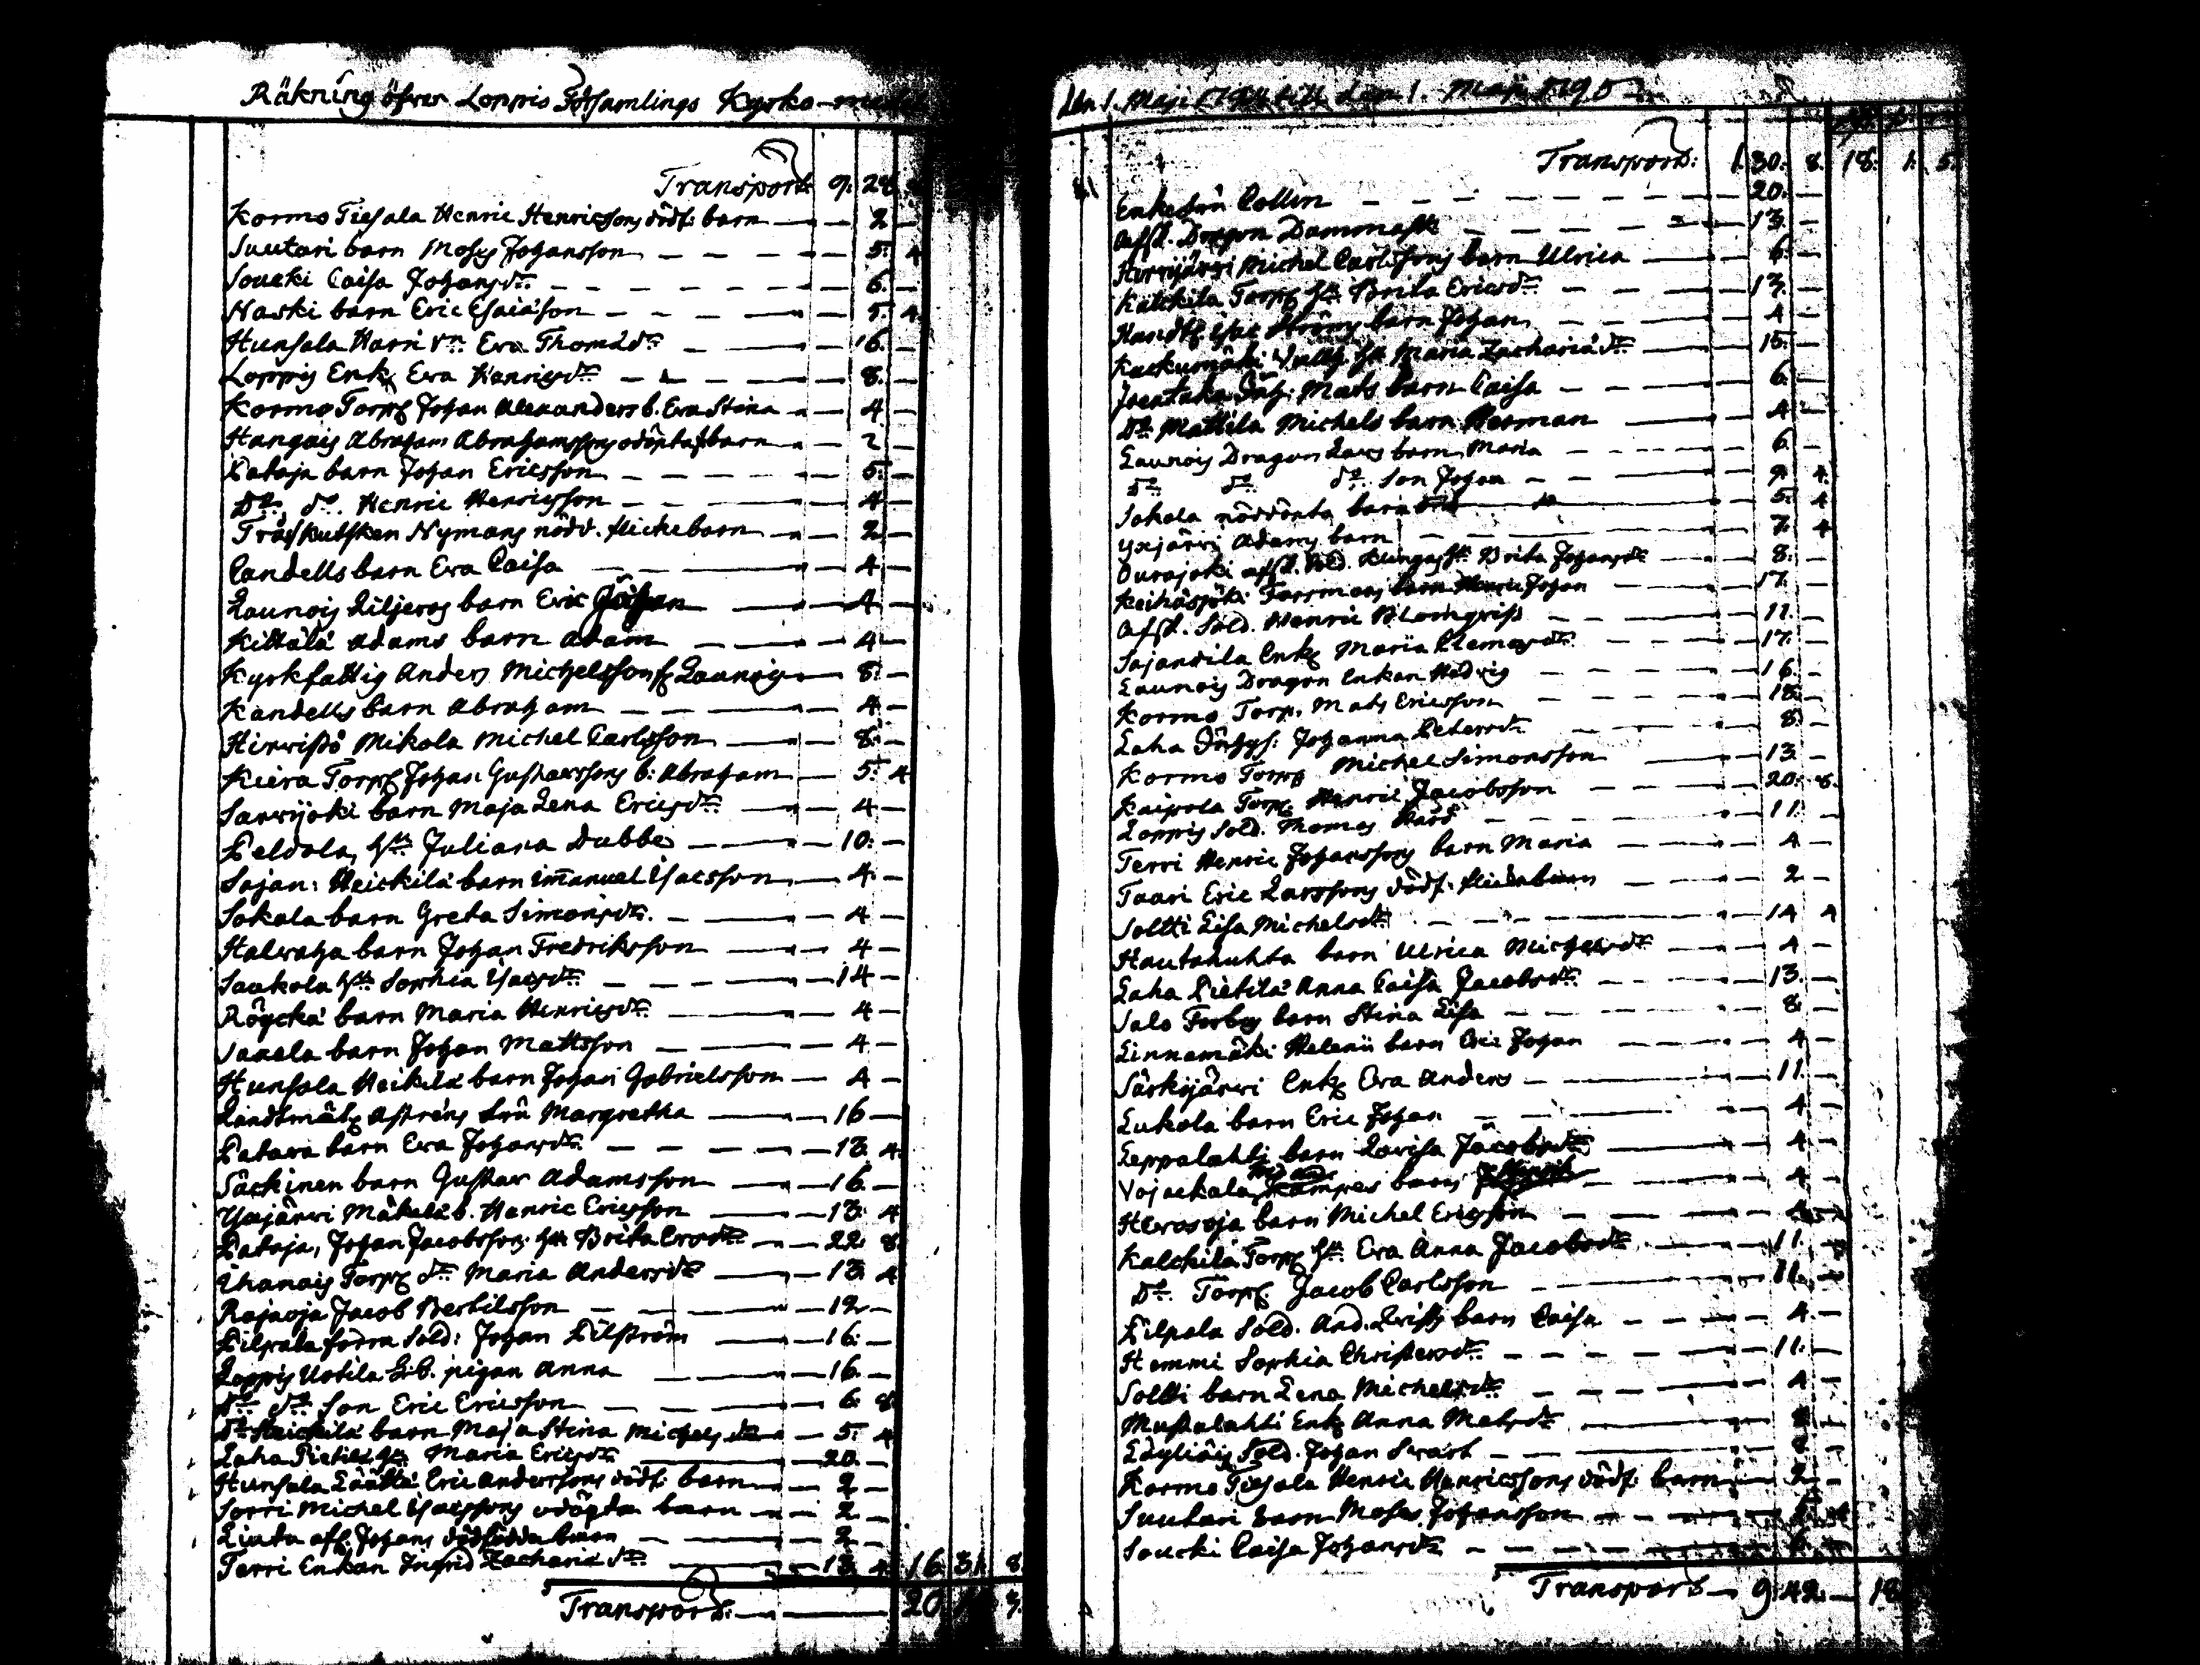 Räkning öfver Loppis Församlings Kyrko-medel
Transport 9. 28.
Kormo Tiesala Henric Henricssons dödf. barn 2
Suutari barn Moses Johansson 5. 4
Soucki Caisa Johansdr. 6.
Naski barn Eric Esaiæson 5. 4.
Hunsala Harri Eva Thomædr. 16.
Loppis Enk. Eva Henricsdr. 8.
Kormo Torp. Johan Alexanders b. Eva Stina 4
Hangais Abraham Abrahamssons odöpta barn 2
Pataja barn Johan Ericsson 5.
Do. do. Henric Henricsson 4
Träskkulsken Nymans nödd. flickebarn 2
Candells barn Eva Caisa 4
Launois Liljeros barn Eric Johan 4
Kittälä Adams barn Adam 4
Kyrkfattig Anders Michelsson fr. Launois 8.
Kandells barn Abraham 4
Hirvistö Mikola Michel Carlsson 8.
Kiera Torp. Johan Gustavssons b. Abraham 5. 4
Sarvijoki barn Maja Lena Ericsdr. 4
Peldola, hu. Juliana Dubbe 10.
Sajan: Heickilä barn Immanuel Isacsson 4
Sokala barn Greta Simonsdr. 4
Halvaha barn Johan Fredriksson 4
Saukola hu. Sophia Isacsdr. 14
Röyckä barn Maria Henricsdr. 4
barn Johan Mattsson 4
Hunsala Heikilä barn Johan Gabrielsson 4
Landtmät. Astréns fru Margretha 16
Patava barn Eva Johansdr. 13. 4.
Säckinen barn Gustav Adamsson 16.
Yxjärvi Mäkelä b. Henric Ericsson 13. 4
Pataja, Johan Jacobsson hu. Brita Ersdr. 22. 8.
Uhanais Torp. dr. Maria Andersdr. 13. 4
Rajaoja Jacob Bertilsson 12
Pilpala förra Sold: Johan Pilström 16.
Loppis Uotila pigan Anna 16.
do. do. Son Eric Ericsson 6. 8.
do. Heickilä barn Maja Stina Michelsdr. 5. 4
Laha Pietilä hu. Maria Ericsdr. 20.
Hunsala Läättä Eric Anderssons dödf. barn 2
Sorri Michel Isacssons odöpta barn 2
Liuta afsk. Johans dödfödda barn 2
Terri Enkan Ingrid Zachariædr. 13. 4. 16. 31. 8
Transport 20.
den 1. Maji till den 1. Maji
Transport: 1. 30. 8. 18. 1. 5.
Enkefru Collin 20.
Afsk. Dragon Dammask 13.
Hirvijärvi Michel Carlssons barn Ulrica 6.
Kalckila Torp. hu. Brita Ericsdr. 13.
Handtv. Isac Ströms barn Johan 4
Kuckumäki hu. Maria Zachariædr. 15.
Inh: Mats barn Caisa 6.
Do. Mattila Michels barn Herman 4
Launois Dragon Lars barn Maria 6.
do. do. do. Son Johan 9 4.
Sokala nöddöpta barn 5. 4
Yxjärvi Adams barn 7. 4
Ourajoki afsk. Sold. hu. Brita Johansdr. 8.
Keihäsjöki Farsmans barn Johan 17.
Afsk. Sold. Henric Blomqvist 11.
Sajanila Enk. Maria Clemesdr. 17.
Launois Dragon Enkan Hedvig 16.
Kormo Torp. Mats Ericsson 18.
Laha Inhys: Johanna Petersdr. 8.
Kormo Torp. Michel Simonsson 13
Kaipola Torp. Henric Jacobsson 20. 8.
Loppis Sold. Thomas Hård 11.
Terri Henric Johanssons barn Maria 4
Taari Eric Larssons dödf. flickebarn 2
Soltti Lisa Michelsdr. 14 4
Hautahuhta barn Ulrica Michelsdr. 4
Laha Pietilä Anna Caisa Jacobsdr. 13.
Salo Forbus barn Stina Lisa 8
Linnamäki Helenii barn Eric Johan 4
Särkijärvi Enk. Eva Anders 11.
Lukola barn Eric Johan 4
Leppalahti barn Lovisa Jacobsdr. 4
Vojackala Kämpes barn 4
Hevosoja barn Michel Ericsson 4
Kalckila Torp. hu. Eva Anna Jacobsdr. 11
Do. Torp. Jacob Carlsson 11.
Pilpala Sold. And. Qvists barn Caisa 4
Hemmi Sophia Christersdr. 11.
Soltti barn Lena Michelsdr. 4
Mustalahti Enk. Anna Matsdr. 8
Läyliäis Sold. Johan Svart 8
Kormo Tiesala Henric Henricssons dödf. barn 2
Suutari barn Moses Johansson 5. 4
Soucki Caisa Johansdr. 6.
Transport 9. 42. 18